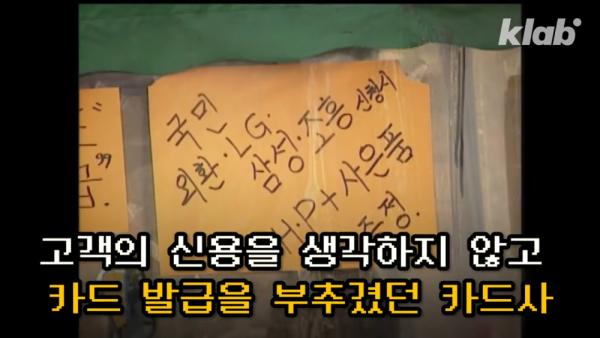 klab
국민
외환·LG·
삼성·조흥 신청시
H.P+사은품
증정.
고객의 신용을 생각하지 않고
카드 발급을 부추겼던 카드사